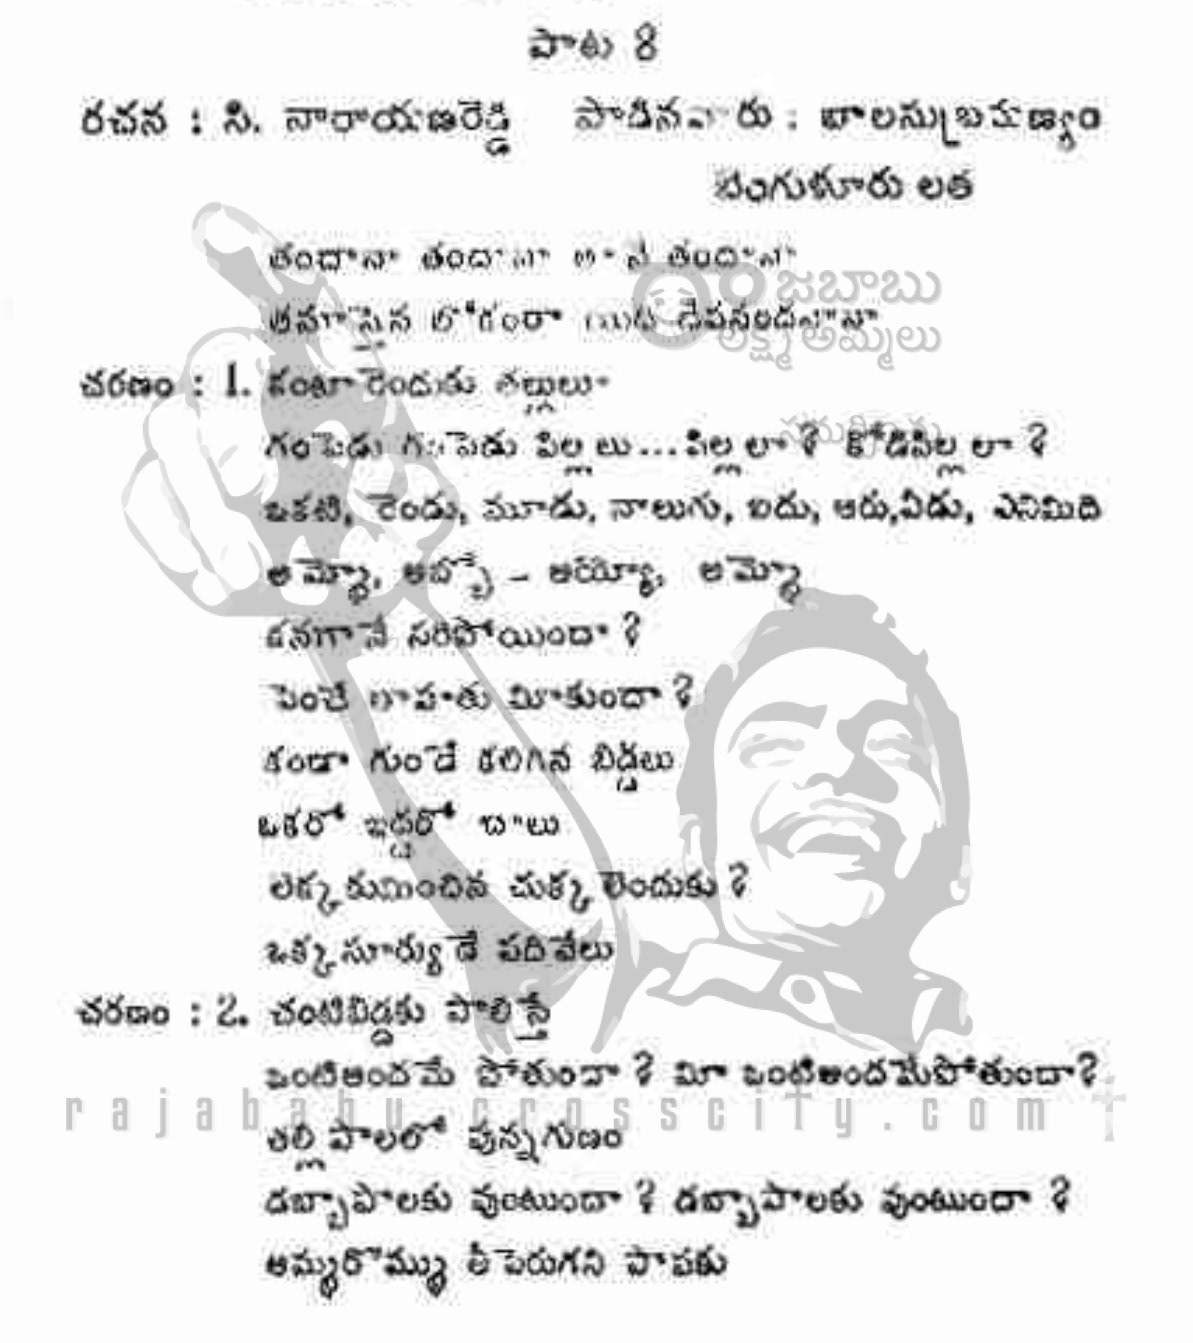 పాట 8
రచన : సి. నారాయణరెడ్డి పాడినవారు : బాలసుబ్రమణ్యం
బెంగుళూరు లత
తందానా తందానా తానే తందానా
రాజబాబు
లక్ష్మీ అమ్మలు
చరణం : 1. కంటారెందుకు తల్లులూ
గంపెడు గంపెడు పిల్లలు...పిల్లలా ? కోడిపిల్లలా ?
ఒకటి, రెండు, మూడు, నాలుగు, ఐదు, ఆరు,ఏడు, ఎనిమిది
అమ్మో, అబ్బో – అయ్యో, అమ్మో
కనగానే సరిపోయిందా ?
పెంచే తాహతు మీకుందా ?
కండా గుండే కలిగిన బిడ్డలు
ఒకరో ఇద్దరో చాలు
లెక్కకుమించిన చుక్కలెందుకు ?
ఒక్కసూర్యుడే పదివేలు
చరణం : 2. చంటిబిడ్డకు పాలిస్తే
ఒంటిఅందమే పోతుందా ? మీ ఒంటిఅందమేపోతుందా?
rajababu.crosscity.com
తల్లిపాలలో వున్నగుణం
డబ్బాపాలకు వుంటుందా ? డబ్బాపాలకు వుంటుందా ?
అమ్మరొమ్ము తీపెరుగని పాపకు